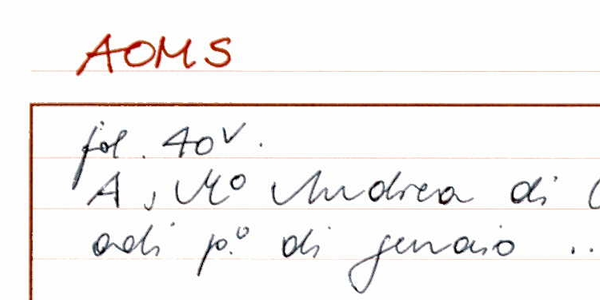 AOMS
fol. 40v.
A, Mo Andrea di
adi p.o di genaio ..